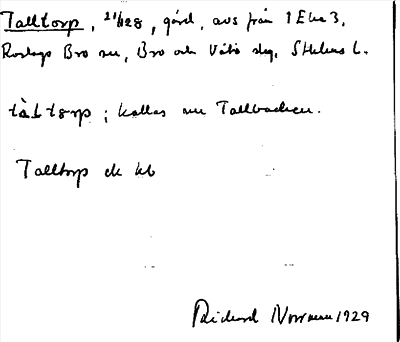 Talltorp, 21/128, gård, avs från 1 Eka 3,
Roslags Bro sn, Bro och Vätö skg, Sthlms L.
tàLtørp; kallas nu Tallbacken.
Talltorp ek kb
Richard Norrman 1929